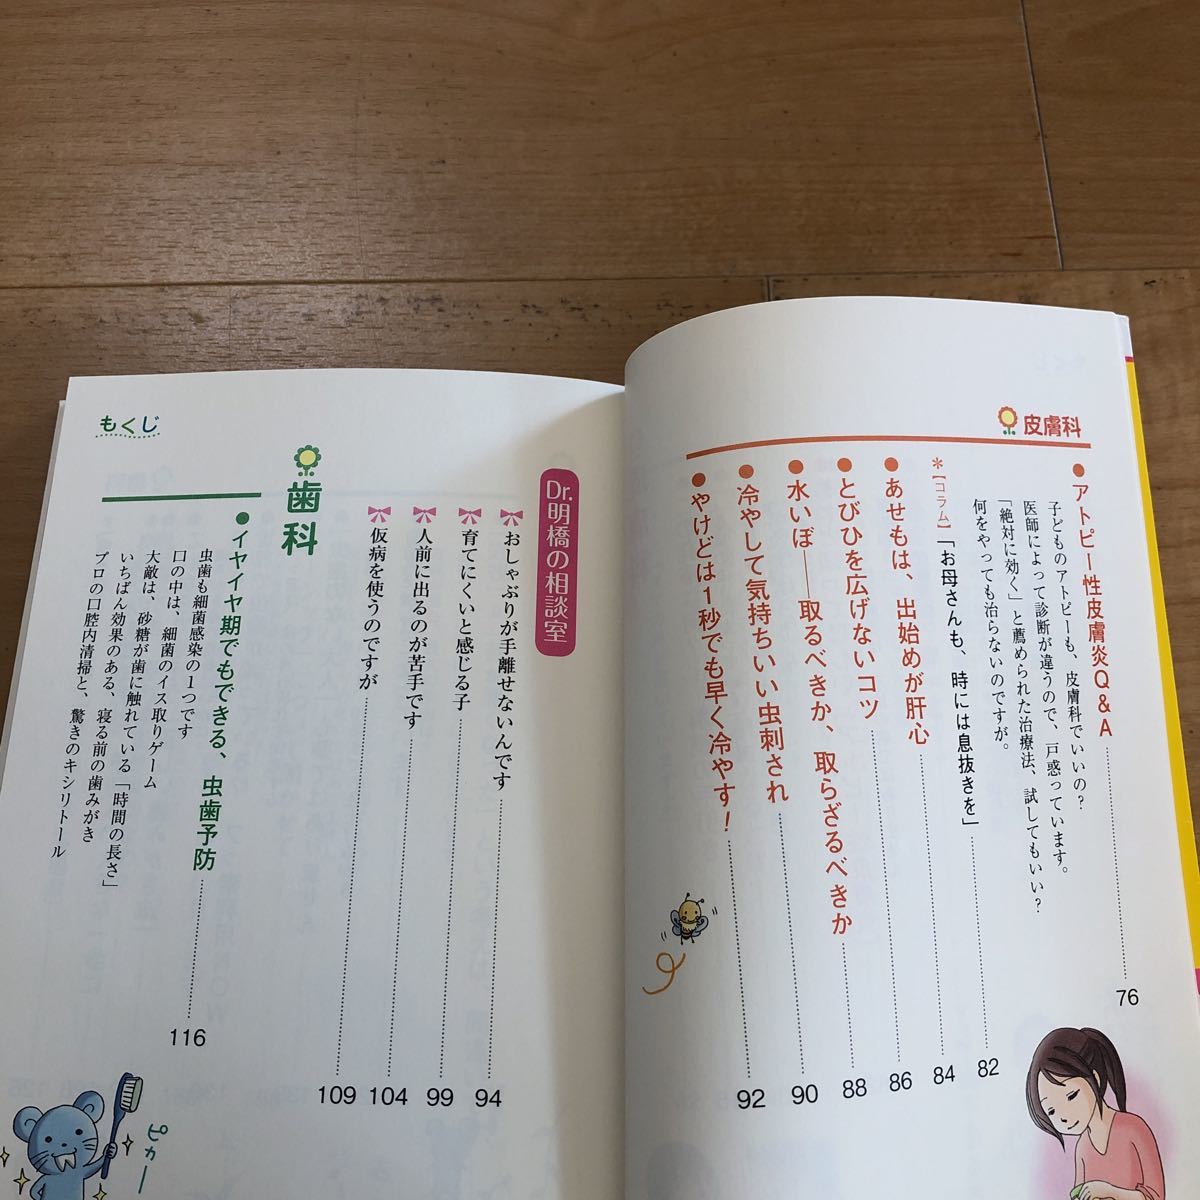 皮膚科
●アトピー性皮膚炎Q&A 76
子どものアトピーも、皮膚科でいいの?
医師によって診断が違うので、戸惑っています。
「絶対に効く」と薦められた治療法、試してもいい?
何をやっても治らないのですが。
*【コラム】「お母さんも、時には息抜きを」 82
●あせもは、出始めが肝心 84
●とびひを広げないコツ 86
●水いぼ――取るべきか、取らざるべきか 88
●冷やして気持ちいい虫刺され 90
●やけどは1秒でも早く冷やす! 92
もくじ
Dr.明橋の相談室
おしゃぶりが手離せないんです 94
育てにくいと感じる子 99
人前に出るのが苦手です 104
仮病を使うのですが 109
歯科
●イヤイヤ期でもできる、虫歯予防 116
虫歯も細菌感染の1つです
口の中は、細菌のイス取りゲーム
大敵は、砂糖が歯に触れている「時間の長さ」
いちばん効果のある、寝る前の歯みがき
プロの口腔内清掃と、驚きのキシリトール
ピカー